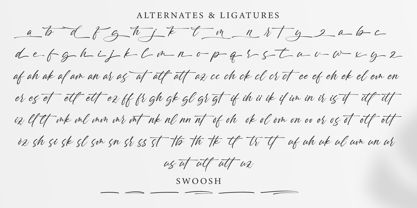 ALTERNATES & LIGATURES
a b d f g h j k l m n r t y z a b c
d e f g h i j k l m n o p q r s t u v w x y z
af ah ak al am an ar as at att att az cc ch ck cl cr ct ee ef eh ek el em en
er es et ett ett ez ff fr gh gk gl gr gt if ih ii ik il im in ir is it itt itt
iz ll tt mk ml mm mr mt nk nl nn nt of oh ok ol om on oo or os ot ott ott
oz sh sc sk sl sm sn sr ss st tb th tk tl tr tt uf uh uk ul um un ur
us ut utt utt uz
SWOOSH